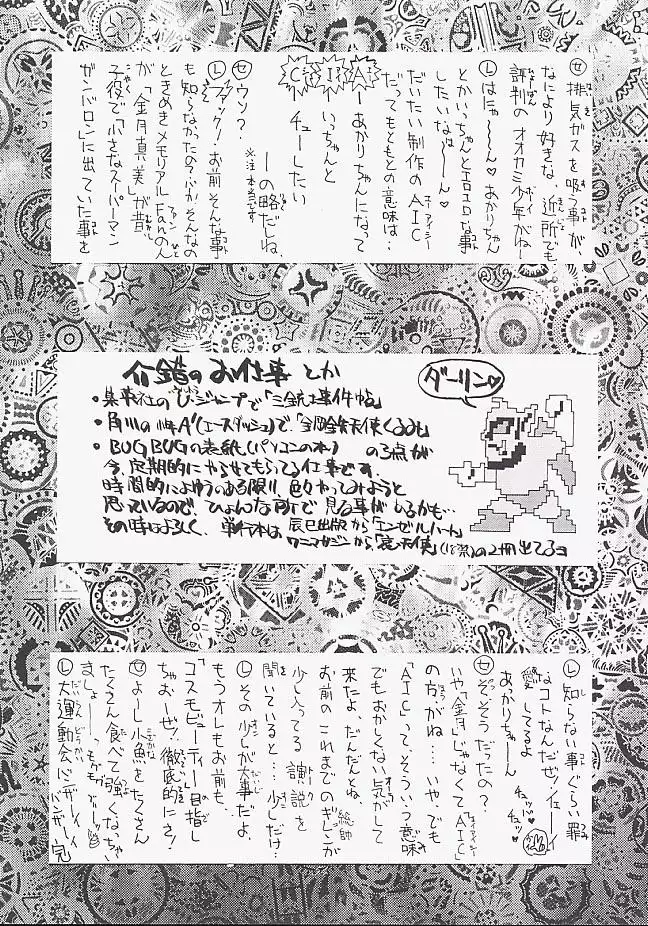 ㋝排気ガスを吸う事が、
なにより好きな、近所でも
評判のオオカミ少年がね…
㋹はにゃ〜〜ん♡あかりちゃん
とかいっちゃんとエロエロな事
したいなぁ〜〜ん♡
だいたい制作のAIC
だってもともとの意味は…
A―あかりちゃんになって
I―いっちゃんと
C―チューしたい
―の略だしね、
※注 本当です
㋝ウソ?
㋹ファック!お前そんな事
も知らなかったの?ふか!そんなの
ときめきメモリアルFanのん
が「金月真美」が昔
子役で「小さなスーパーマン
ガンバロン」に出ていた事を
介錯のお仕事とか
・集英社のVジャンプで「三銃士事件帖」
・角川の少年A'(エースダッシュ)で、「鋼鉄天使くるみ」
・BUG BUGの表紙(パソコンの本)の3点が
今、定期的にやらせてもらってる仕事です。
時間的によゆうのある限り、色々やってみようと
思っているので、ひょんな所で見る事があるかも…
その時はよろしく、単行本は辰巳出版から「エンゼルハート」
ワニマガジンから「哀天使」(18禁)の2冊出てるヨ
ダーリン♡
㋹知らない事ぐらい罪
なコトなんだぜ!イェーイ
愛してるよ
あっかりちゃーん
チュッ♡
チュッ♡
㋝そ、そうだったの?
いや「金月」じゃなくて「AIC」
の方がね…いや、でも
「AIC」って、そういう意味
でもおかしくない気がして
来たよ、だんだんとね
お前のこれまでのギレン総帥が
少し入ってる演説を
聞いていると…少しだけ…
㋹その少しが大事だよ、
もうオレもお前も、
「コスモビューティー」目指し
ちゃおーぜ!徹底的にさ!
㋝よーし小魚をたくさん
たくさん食べて強くなっちゃい
ましょーっモグモグ
㋹大運動会バンザーイ
バンザーイ 完